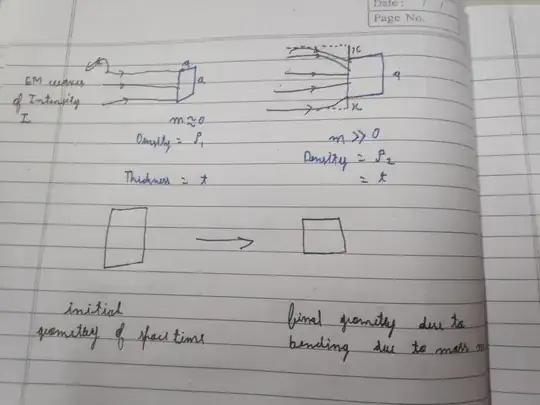 Date : / /
Page No.
a
a
EM waves
of Intensity
I
m ≈ 0
Density = ρ₁
Thickness = t
x
a
x
m >> 0
Density = ρ₂
= t
initial
geometry of space time
final geometry due to
bending due to mass m